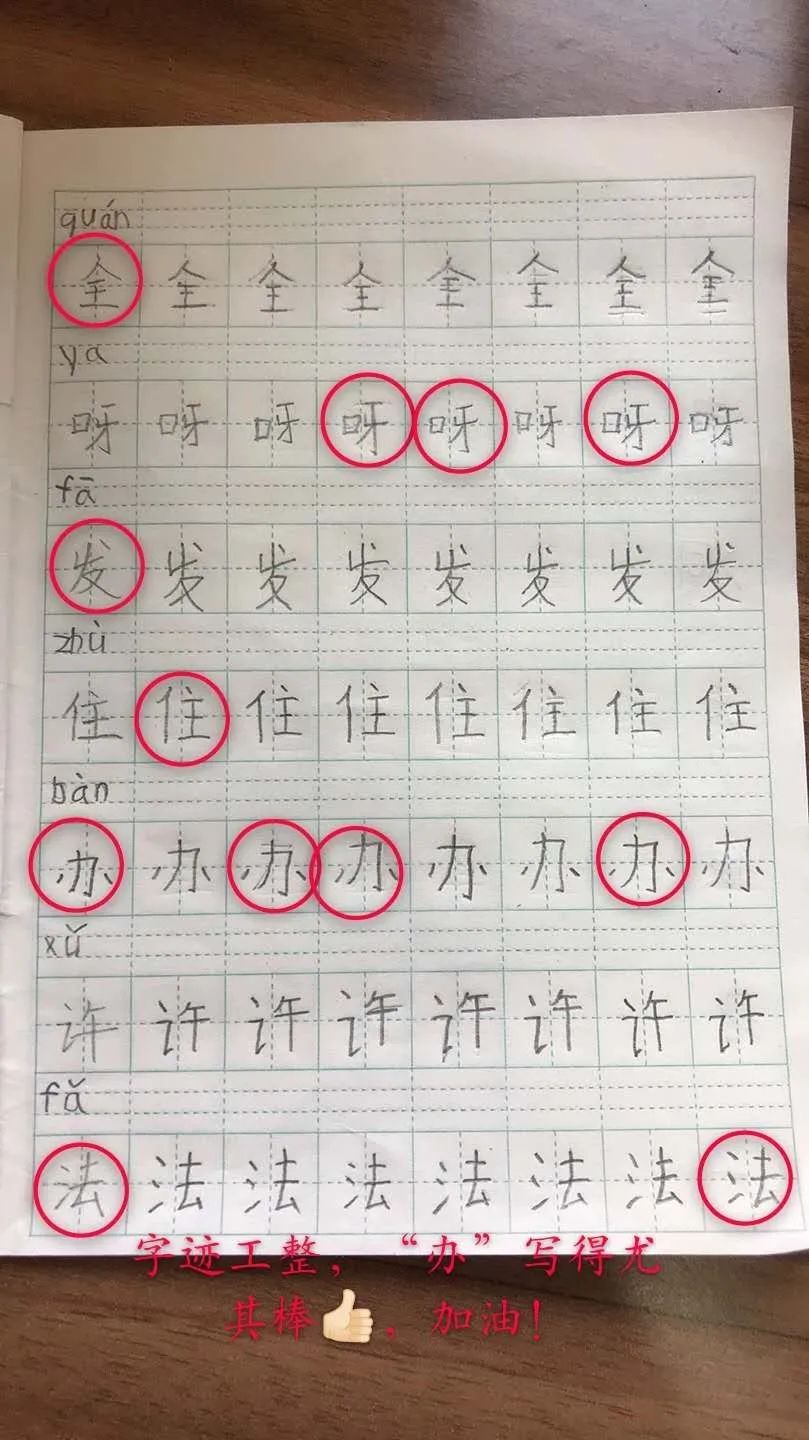 quán
全 全 全 全 全 全 全 全
ya
呀 呀 呀 呀 呀 呀 呀 呀
fā
发 发 发 发 发 发 发 发
zhù
住 住 住 住 住 住 住 住
bàn
办 办 办 办 办 办 办 办
xǔ
许 许 许 许 许 许 许 许
fǎ
法 法 法 法 法 法 法 法
字迹工整，“办”写得尤
其棒👍，加油！